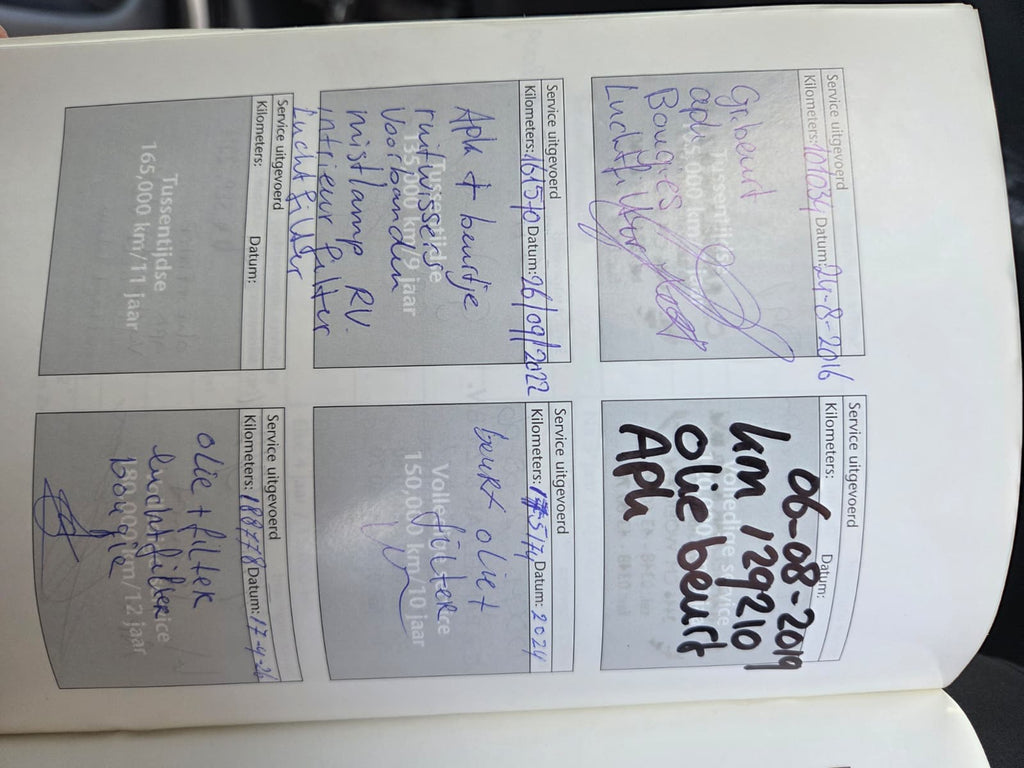 Service uitgevoerd
Kilometers: 101034 Datum: 24-8-2016
Gr. beurt
apk
Bougies
Luchtfilter
Service uitgevoerd
Kilometers: Datum:
06-08-2019
km 129210
olie beurt
Apk
Service uitgevoerd
Kilometers: 161570 Datum: 26/09/2022
Apk + beurtje
ruitwissers
Voorbanden
mistlamp RV.
intrieur filter
Lucht filter
Tussentijdse
135,000 km/9 jaar
Service uitgevoerd
Kilometers: 175174 Datum: 2024
beurt olie +
filter
Volle
150,000 km/10 jaar
Service uitgevoerd
Kilometers: Datum:
Tussentijdse
165,000 km/11 jaar
Service uitgevoerd
Kilometers: 188778 Datum: 17-4-26
olie + filter
luchtfilter
bougie
180,000 km/12 jaar